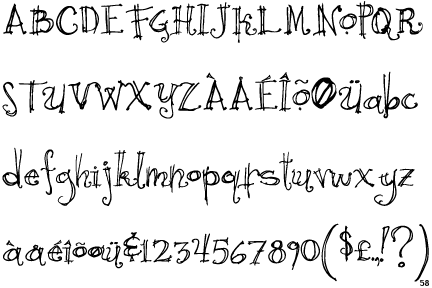 ABCDEFGHIJKLMNOPQR
STUVWXYZÀÅÉÎõØüabc
defghijklmnopqrstuvwxyz
àåéîõøü&1234567890($£.,!?)
58